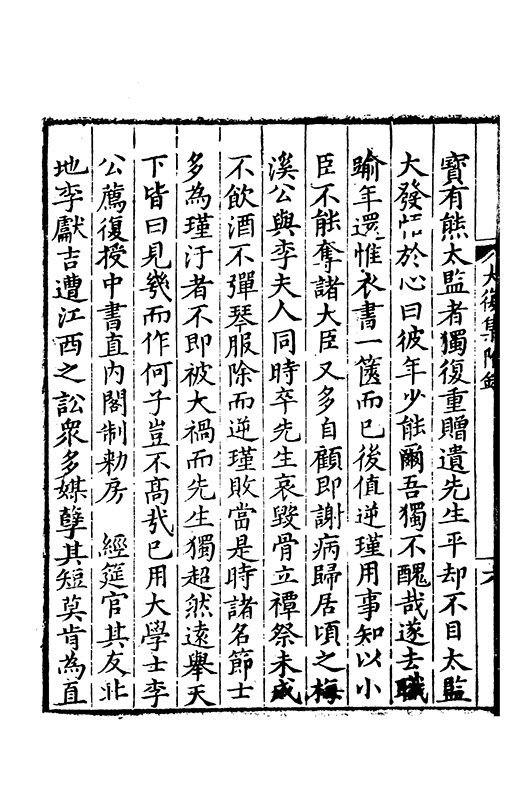 寶有熊太監者獨復重贈遺先生平却不目太監
大發悟於心曰彼年少能爾吾獨不醜哉遂去職
踰年還惟衣書一篋而已後值逆瑾用事知以小
臣不能奪諸大臣又多自顧即謝病歸居頃之梅
溪公與李夫人同時卒先生哀毀骨立禫祭未成
不飲酒不彈琴服除而逆瑾敗當是時諸名節士
多為瑾汙者不即被大禍而先生獨超然遠舉天
下皆曰見幾而作何子豈不高哉已用大學士李
公薦復授中書直內閣制勑房　經筵官其友北
地李獻吉遭江西之訟眾多媒孽其短莫肯為直
大復集附錄
六